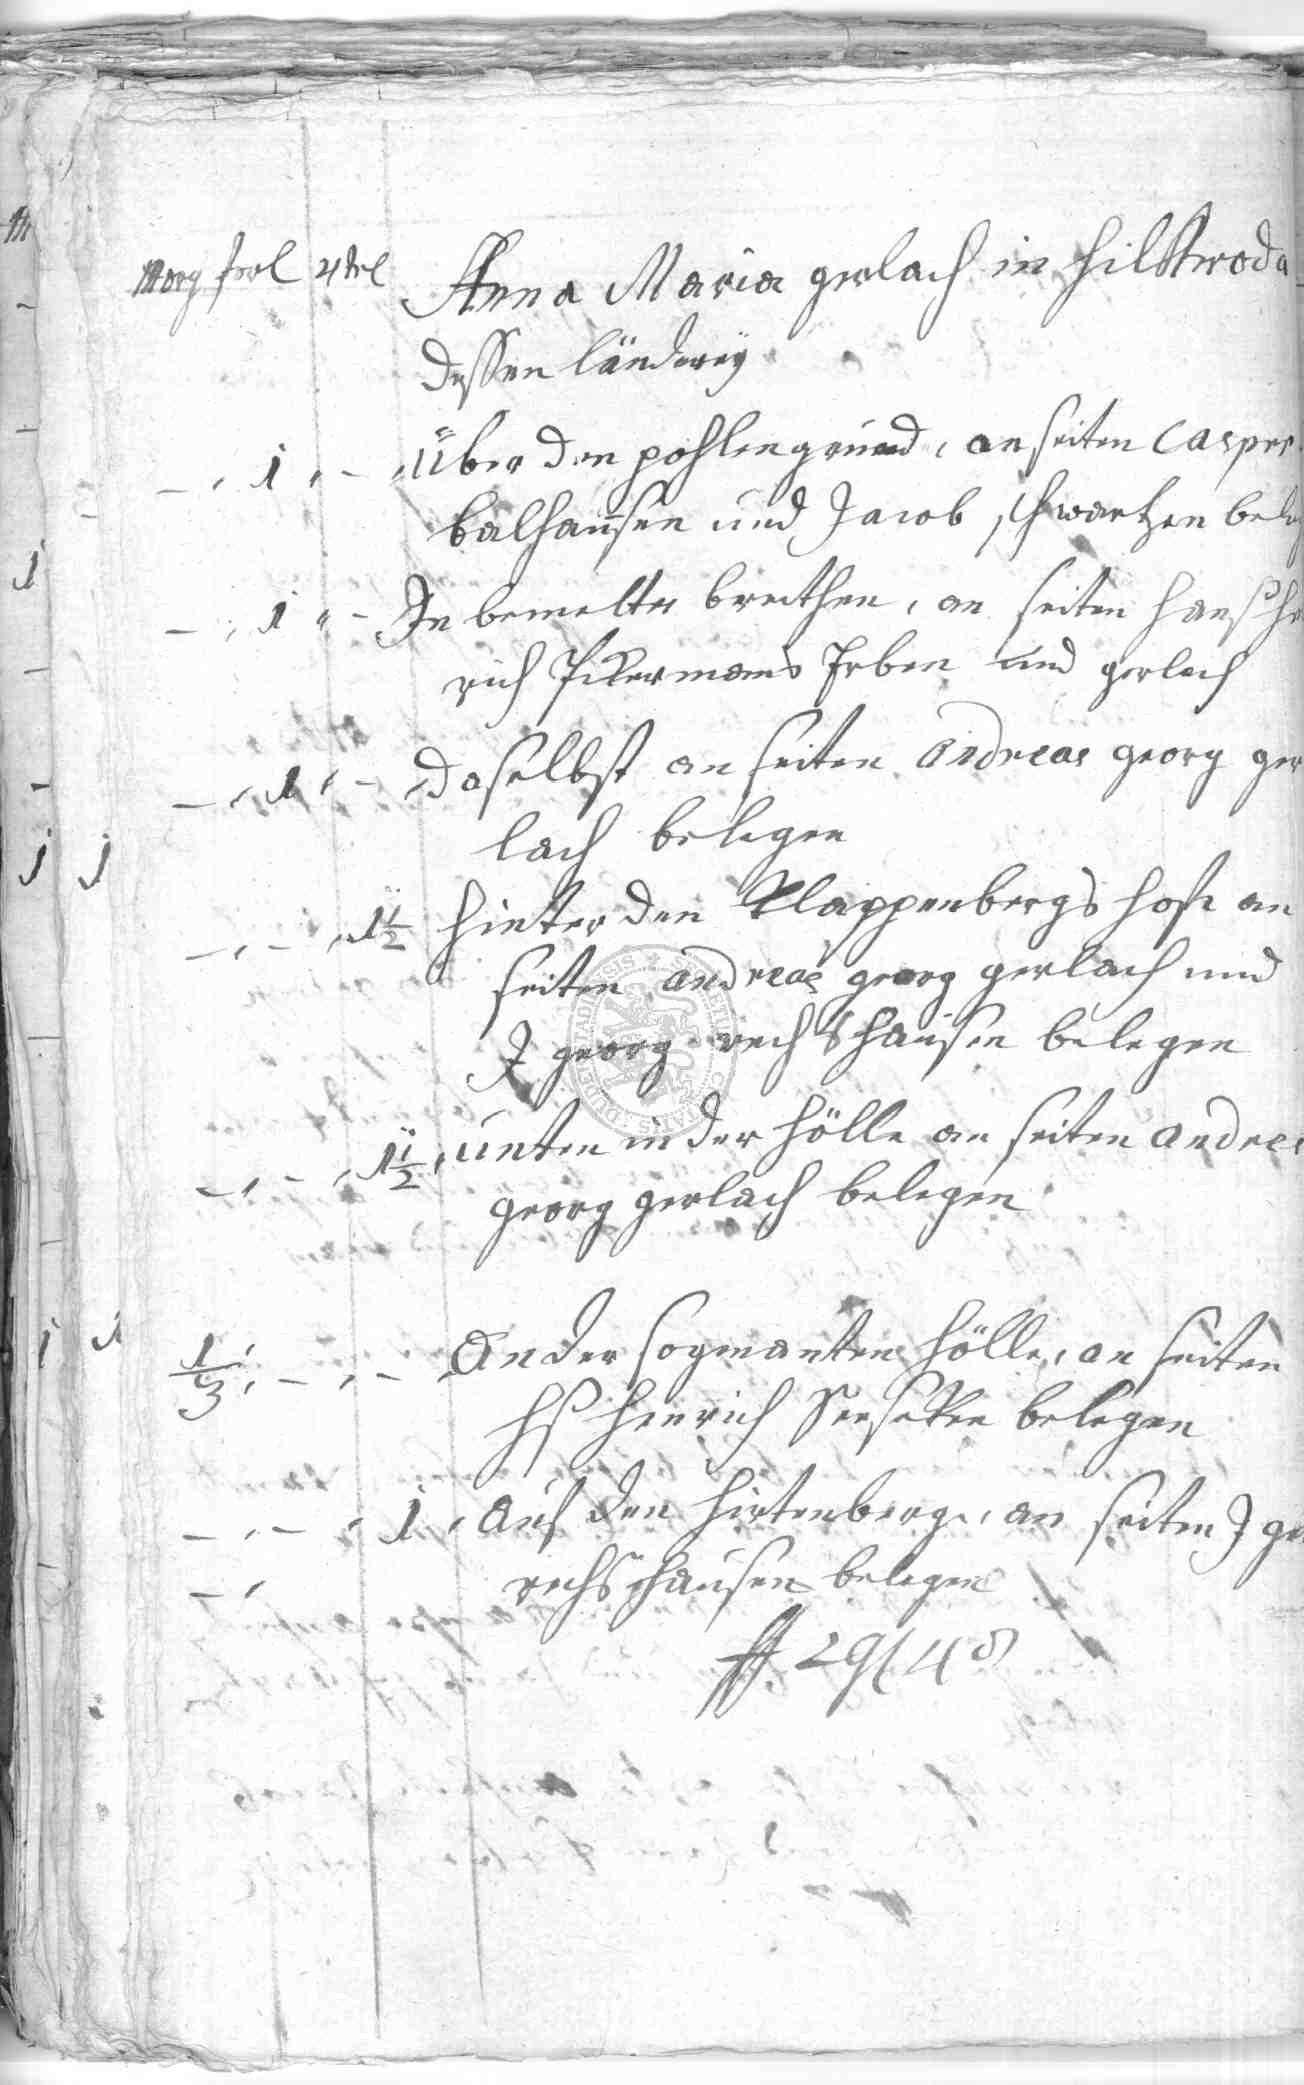 Morg forl 4tel
Anna Maria gerlach in Hilckeroda
dessen länderey
- , 1 , - , über den pohlengrund, an seiten Casper
balhausen und Jacob schwartzen beleg
- , 1 , - In bemelter breithen, an seiten Hans he
rich Ackermans Erben und gerlach
- , 1 , - , daselbst an seiten Andreas georg ger
lach belegen
- , - , 1 1/2 Hinter den Klappenbergs Hofe an
seiten Andreas georg gerlach und
J georg rechshausen belegen
- , - , 1 1/2 , unten in der Hölle an seiten Andreas
georg gerlach belegen
1/3 , - , - , An der sogenanten Hölle, an seiten
Hs Henrich belegen
- , - , 1 , Auf den Hirtenberge, an seiten J ge
rechshausen belegen